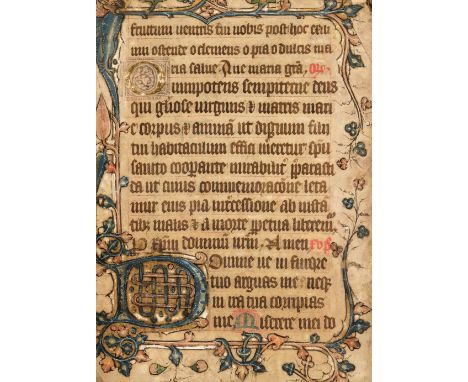 fructum ventris tui nobis post hoc exi
lium ostende o clemens o pia o dulcis ma
ria salve Ave maria grã. Oro
Omnipotens sempiterne deus
qui gliose virginis & matris mari
e corpus & animã ut dignum filii
tui habitaculum effici meretur spũ
sancto cooperante mirabilit pparasti
da ut cuius commemoracone leta
mur eius pia intercessione ab insta
tibz malis & a morte ppetua liberem
P xp̃m dominũ nrũ. Amen
Domine ne in furore
tuo arguas me neqz
in ira tua corripias
me Miserere mei do